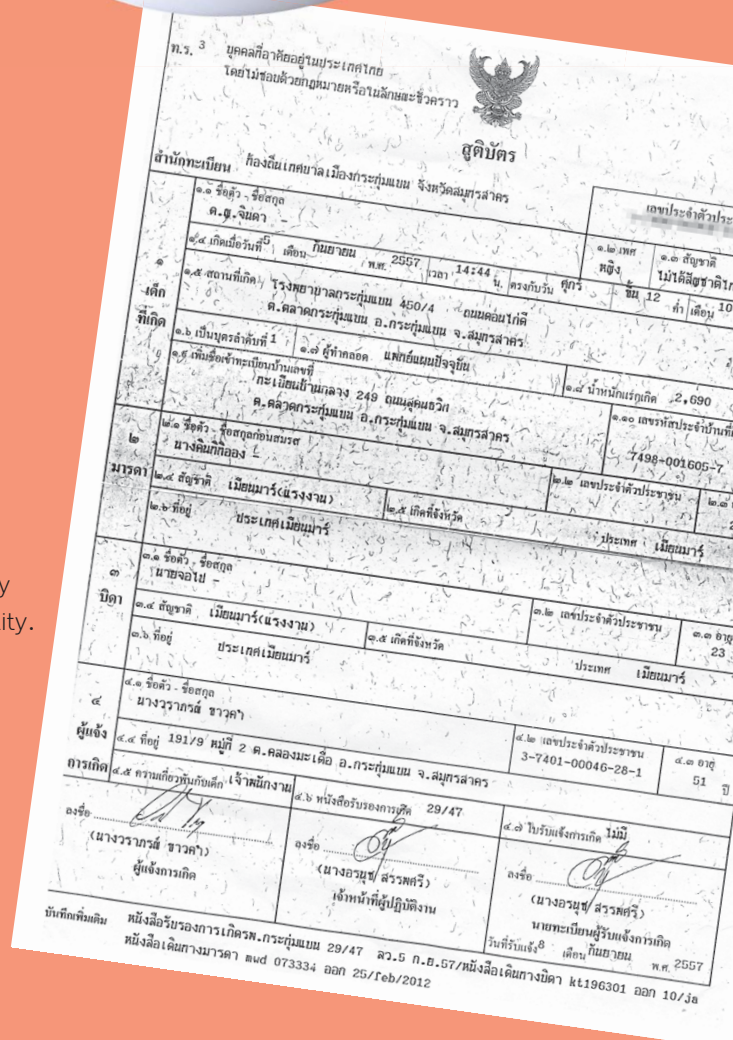 ท.ร. 3 บุคคลที่อาศัยอยู่ในประเทศไทย
โดยไม่ชอบด้วยกฎหมายหรือในลักษณะชั่วคราว
สูติบัตร
สำนักทะเบียน ท้องถิ่นเทศบาลเมืองกระทุ่มแบน จังหวัดสมุทรสาคร
๑.๑ ชื่อตัว - ชื่อสกุล
ด.ญ.จินดา -
เลขประจำตัวประ
๑.๒ เพศ
หญิง
๑.๓ สัญชาติ
ไม่ได้สัญชาติไท
๑.๔ เกิดเมื่อวันที่ 5 เดือน กันยายน พ.ศ. 2557 เวลา 14:44 น. ตรงกับวัน ศุกร์ ขึ้น 12 ค่ำ เดือน 10
๑
เด็ก
ที่เกิด
๑.๕ สถานที่เกิด โรงพยาบาลกระทุ่มแบน 450/4 ถนนดอนไก่ดี
ต.ตลาดกระทุ่มแบน อ.กระทุ่มแบน จ.สมุทรสาคร
๑.๖ เป็นบุตรลำดับที่ 1 ๑.๗ ผู้ทำคลอด แพทย์แผนปัจจุบัน ๑.๘ น้ำหนักแรกเกิด 2,690
๑.๙ เพิ่มชื่อเข้าทะเบียนบ้านเลขที่
ทะเบียนบ้านกลาง 249 ถนนสุคนธวิท
ต.ตลาดกระทุ่มแบน อ.กระทุ่มแบน จ.สมุทรสาคร
๑.๑๐ เลขรหัสประจำบ้านที่
7498-001605-7
๒
มารดา
๒.๑ ชื่อตัว - ชื่อสกุลก่อนสมรส
๒.๒ เลขประจำตัวประชาชน
๒.๔ สัญชาติ เมียนมาร์(แรงงาน) ๒.๕ เกิดที่จังหวัด ประเทศ เมียนมาร์
๒.๖ ที่อยู่ ประเทศเมียนมาร์
๓
บิดา
๓.๑ ชื่อตัว - ชื่อสกุล
นายจอไป -
๓.๒ เลขประจำตัวประชาชน
๓.๓ อายุ
23
๓.๔ สัญชาติ เมียนมาร์(แรงงาน) ๓.๕ เกิดที่จังหวัด ประเทศ เมียนมาร์
๓.๖ ที่อยู่ ประเทศเมียนมาร์
๔
ผู้แจ้ง
การเกิด
๔.๑ ชื่อตัว - ชื่อสกุล
นางวราภรณ์
๔.๒ เลขประจำตัวประชาชน
3-7401-00046-28-1
๔.๓ อายุ
51 ปี
๔.๔ ที่อยู่ 191/9 หมู่ที่ 2 ต.คลองมะเดื่อ อ.กระทุ่มแบน จ.สมุทรสาคร
๔.๕ ความเกี่ยวพันกับเด็ก เจ้าพนักงาน ๔.๖ หนังสือรับรองการเกิด 29/47 ๔.๗ ใบรับแจ้งการเกิด ไม่มี
ลงชื่อ
(นางวราภรณ์
ผู้แจ้งการเกิด
ลงชื่อ
(นางอรนุช สรรพศรี)
เจ้าหน้าที่ผู้ปฏิบัติงาน
ลงชื่อ
(นางอรนุช สรรพศรี)
นายทะเบียนผู้รับแจ้งการเกิด
วันที่รับแจ้ง 8 เดือน กันยายน พ.ศ. 2557
บันทึกเพิ่มเติม หนังสือรับรองการเกิดรพ.กระทุ่มแบน 29/47 ลว.5 ก.ย.57/หนังสือเดินทางบิดา kt196301 ออก 10/ja
หนังสือเดินทางมารดา mwd 073334 ออก 25/feb/2012
y
ity.